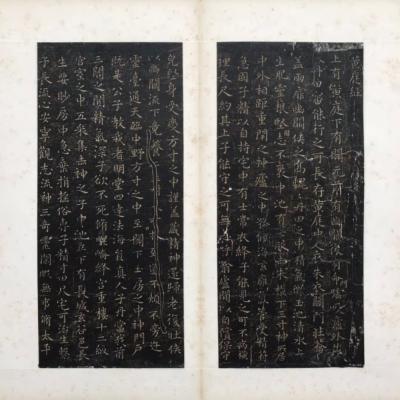 黃庭經
上有黃庭下有關元前有幽闕後有命門噓吸廬外
出入丹田審能行之可長存黃庭中人衣朱衣關門壯籥
蓋兩扉幽闕俠之高魏魏丹田之中精氣微玉池清水上
生肥靈根堅志不衰中池有士服赤朱橫下三寸神所居
中外相距重閉之神廬之中務脩治玄癰氣管受精符
急固子精以自持宅中有士常衣絳子能見之可不病橫
理長尺約其上子能守之可無恙呼噏廬間以自償保守
完堅身受慶方寸之中謹蓋藏精神還歸老復壯俠
以幽闕流下竟養至道不煩不旁迕
靈臺通天臨中野方寸之中至關下玉房之中神門戶
既是公子教我者明堂四達法海員真人子丹當我前
三關之間精氣深子欲不死脩崑崙絳宮重樓十二級
宮室之中五采集赤神之子中池立下有長城玄谷邑長
生要眇房中急棄捐搖俗專子精寸田尺宅可治生繫
子長流心安寧觀志流神三奇靈閒暇無事脩太平